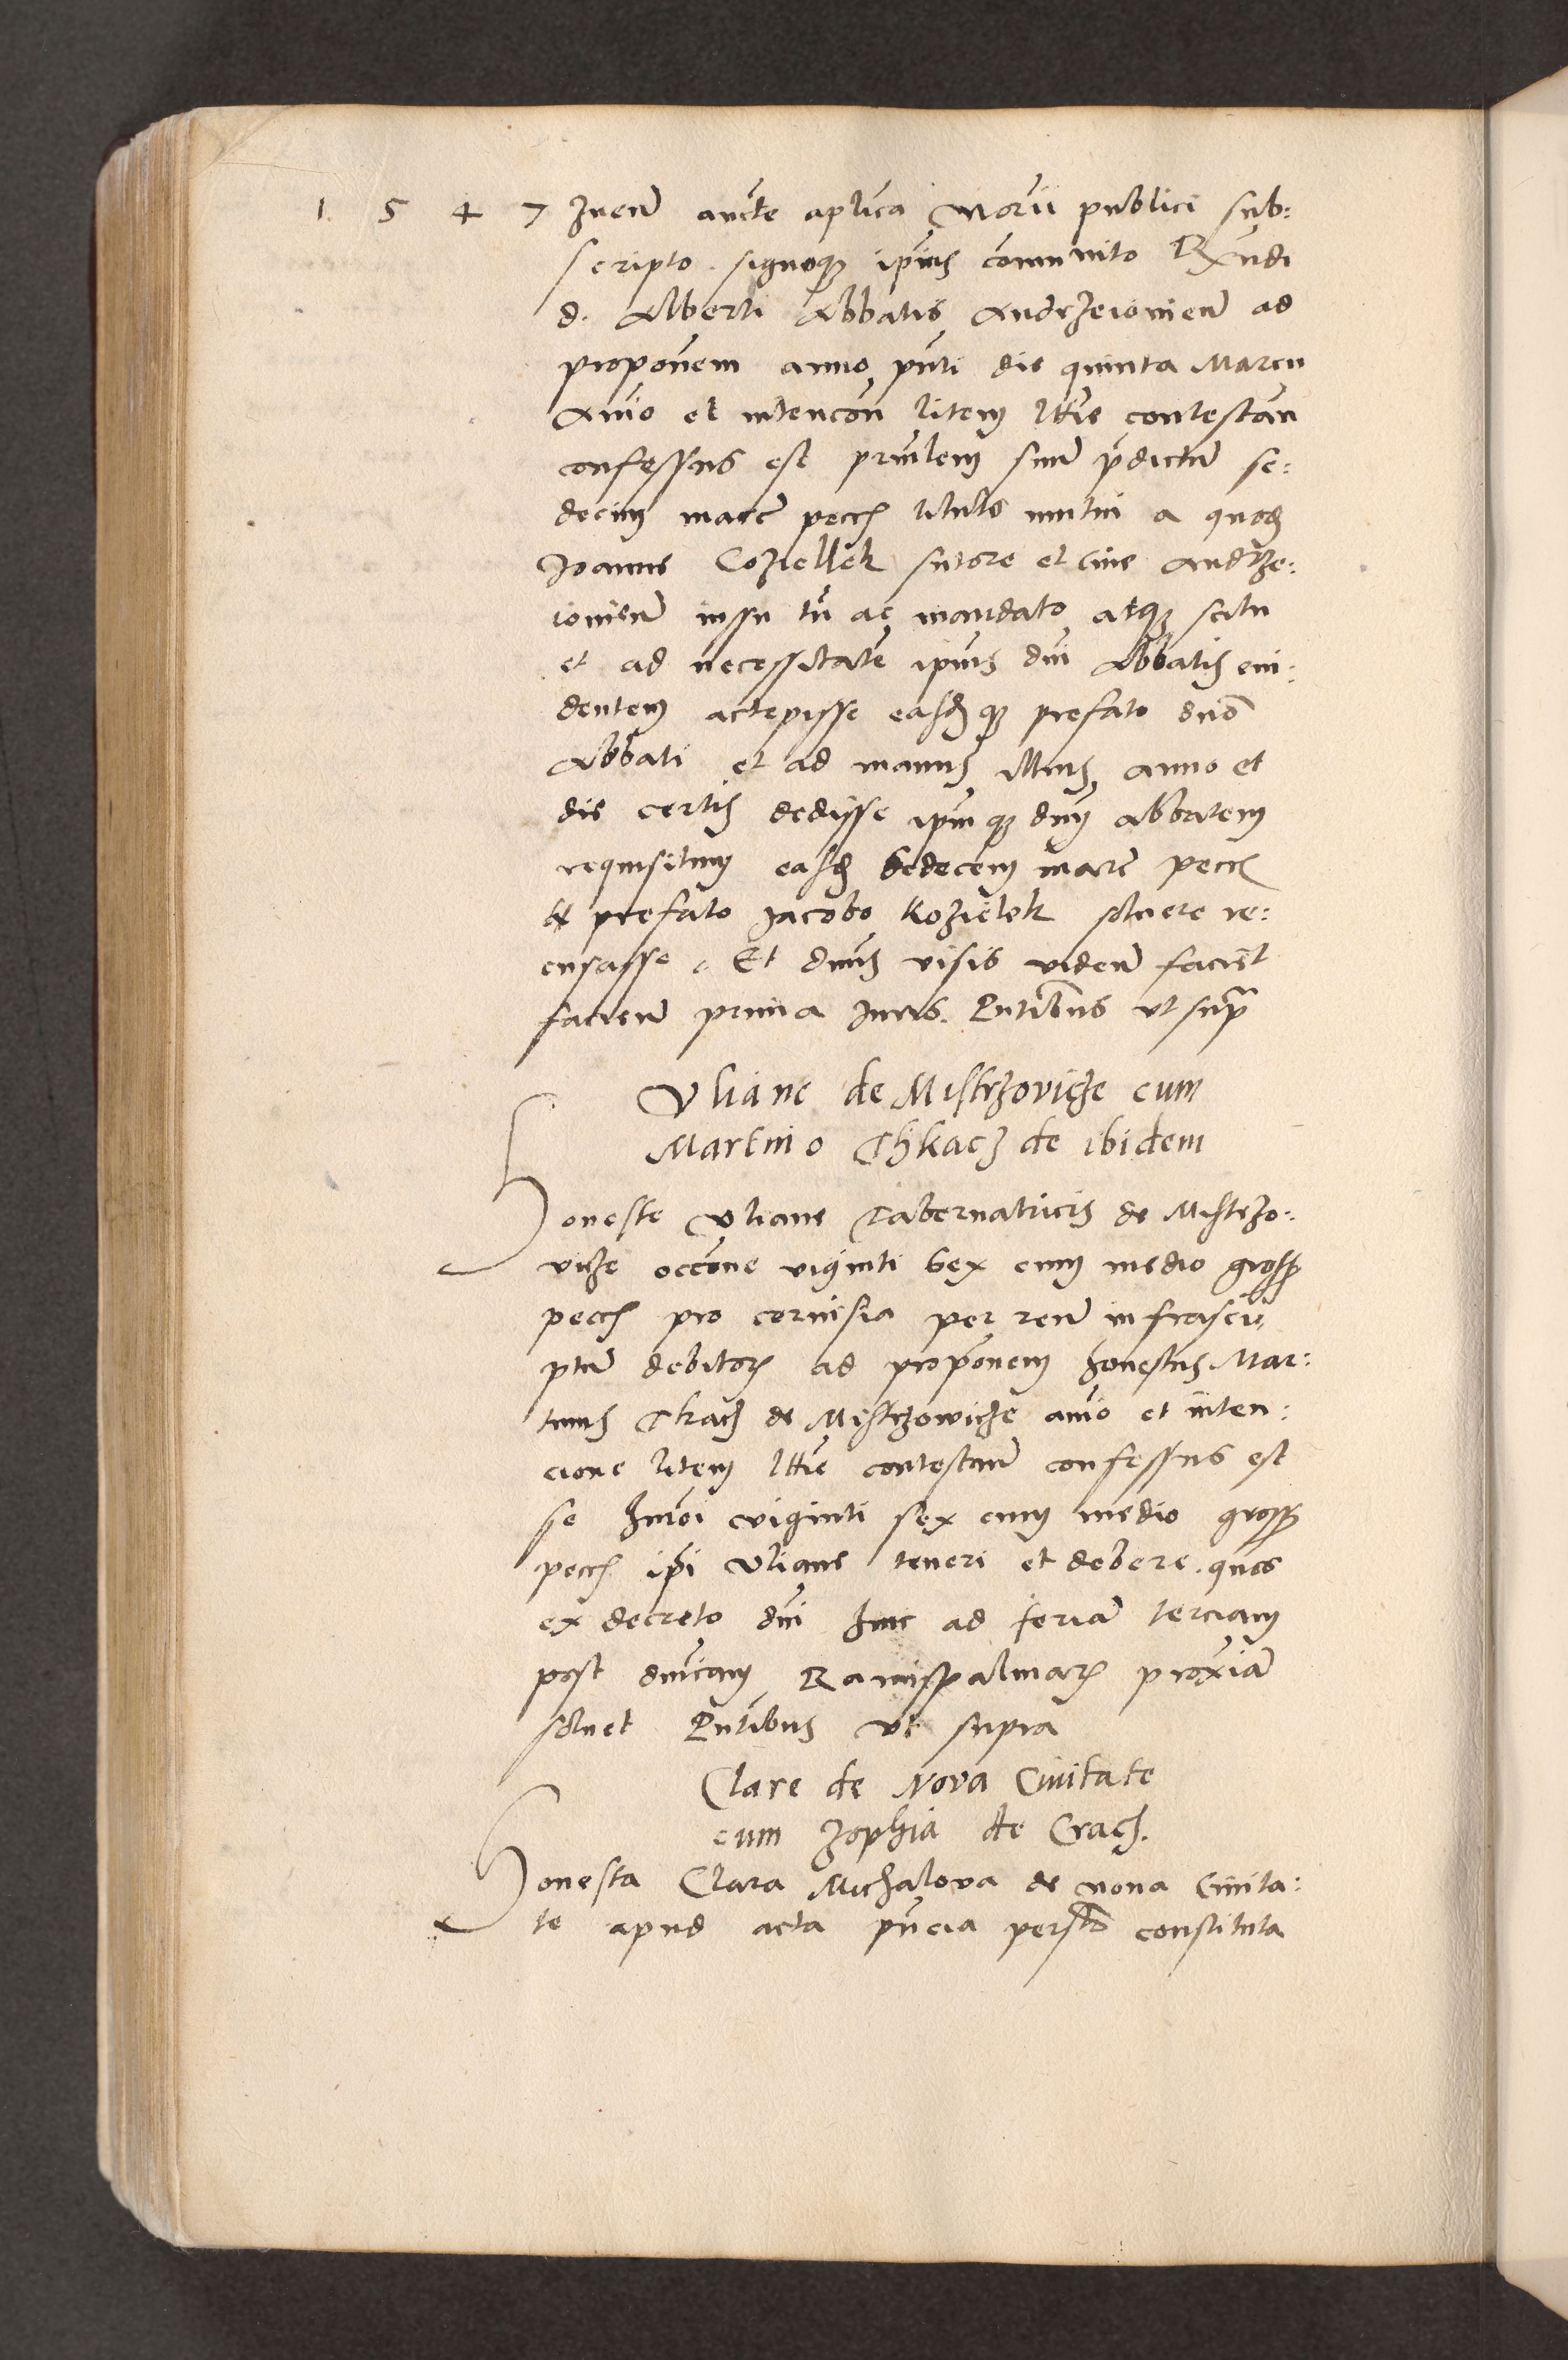 1 5 4 7 Juem̄ aucte aplica Notrii publici sub:
scripto signoq ipius comunito Rx̄ndi
d. Alberti Abbatis Andrzeiouien̄ ad
proponem anno pn̄ti die quinta Marcii
Anīo et intencōn litem lttīe contestan
confessus est priñlem suū p̄dictū se:
decim marc̄ pecc titulo mutui a quod
Joanne Coziellek sutore et ciue Andrze:
iouien̄ iussu tn̄ ac mandato atq scitu
et ad necessitatē ipius dn̄i Abbatis eui:
dentem accepisse easdq prefato dnō
Abbati et ad manus illius anno et
die certis dedisse ipm̄q dnm̄ abbatem
requisitum easd sedecem marc̄ pecc
prefato Jacobo Kozielek soluere re:
cusasse. Et dnūs visis viden̄ faciet
facien̄ prima Juris. Pn̄tibus vt supra
Vliane de Mistrzovicze cum
Martino Thkacz de ibidem
Honeste Vliane Tabernatricis de Mistrzo:
vicze occōne viginti sex cum medio gross
pecc pro ceruisia per reū infrascri
ptū debitor ad proponem honestus Mar:
tinus Tkacz de Mistrzowicze anīo et inten:
cione litem lttīe contestan̄ confessus est
se hm̄oi viginti sex cum medio gross
pecc ipi Vliane teneri et debere. quos
ex decreto dn̄i hinc ad feriā terciam
post dnīcam Ramispalmar proxiā
soluet Pn̄tibus vt supra
Clare de Nova Ciuitate
cum Zophia de Cracz.
Honesta Clara Michalova de noua Ciuita:
te apud acta pn̄cia persr̄ constituta